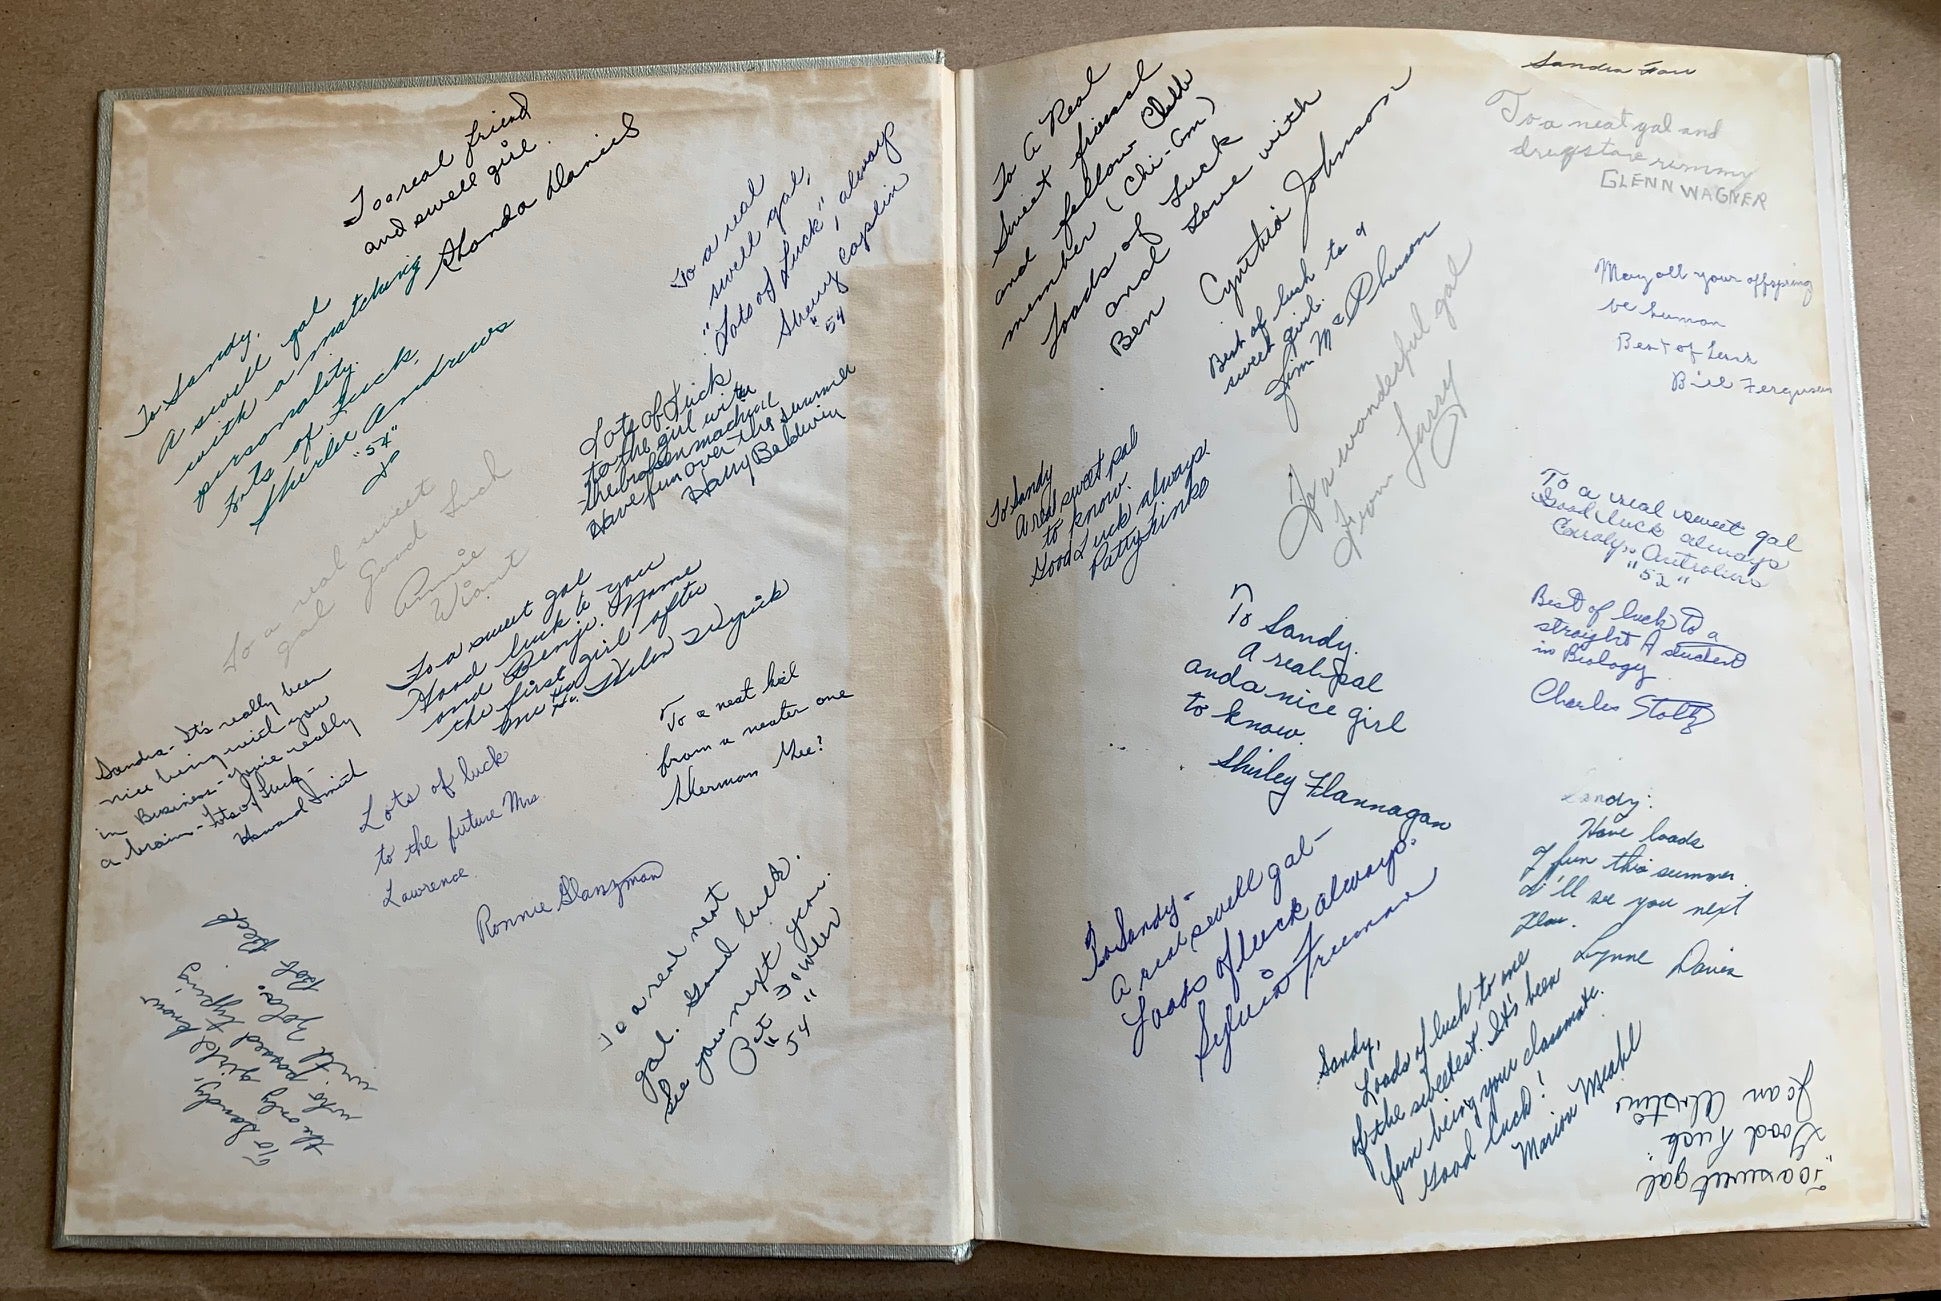 To a real friend
and swell girl.
Daniels
To Sandy,
A swell gal
with a matching
personality.
Lots of Luck,
Shirlee Andrews
"54"
To a real
swell gal,
"Lots of Luck", always
Sherry Caplin
"54
Lots of Luck
to the girl with
the broken machine
Have fun over the summer
Harry Baldwin
To a real sweet
gal Good Luck
Annie
Wiant
To a sweet gal
Good luck to you
and Benje. Name
the first girl after
me Ha Ha. Helen Wyrick
Sandra - It's really been
nice being with you
in Business - You're really
a brain - Lots of Luck -
Howard Smith
To a neat kid
from a neater one
Herman Mee?
Lots of luck
to the future Mrs.
Lawrence.
Ronnie Glanzman
To a real neat
gal. Good luck.
See you next year.
Pat Fowler
"54"
To Sandy-
the only girl I know
who passed typing
with Zola.
Bob Reed
Sandra
To A Real
Sweet friend
and fellow Club
member (Chi-Am)
Loads of Luck
and Love with
Ben
Cynthia Johnson
Best of luck to a
sweet girl.
Jim McPherson
To a wonderful gal
From Larry
To Sandy
A real sweet pal
to know.
Good Luck always.
Patty Finke
To Sandy.
A real pal
and a nice girl
to know.
Shirley Flannagan
To Sandy-
A real swell gal-
Loads of luck always.
Sylvia Freeman
Sandy,
Loads of luck to one
of the sweetest. It's been
fun being your classmate.
Good luck!
Marion Meahl
To a neat gal and
drugstore rummy
GLENN WAGNER
May all your offspring
be human
Best of Luck
Bill Ferguson
To a real sweet gal
Good luck always
Carolyn
"52"
Best of luck to a
straight A student
in Biology
Charles Stoltz
Sandy:
Have loads
of fun this summer.
I'll see you next
Year.
Lynne Davis
"To a sweet gal
Good Luck"
Jean Austin